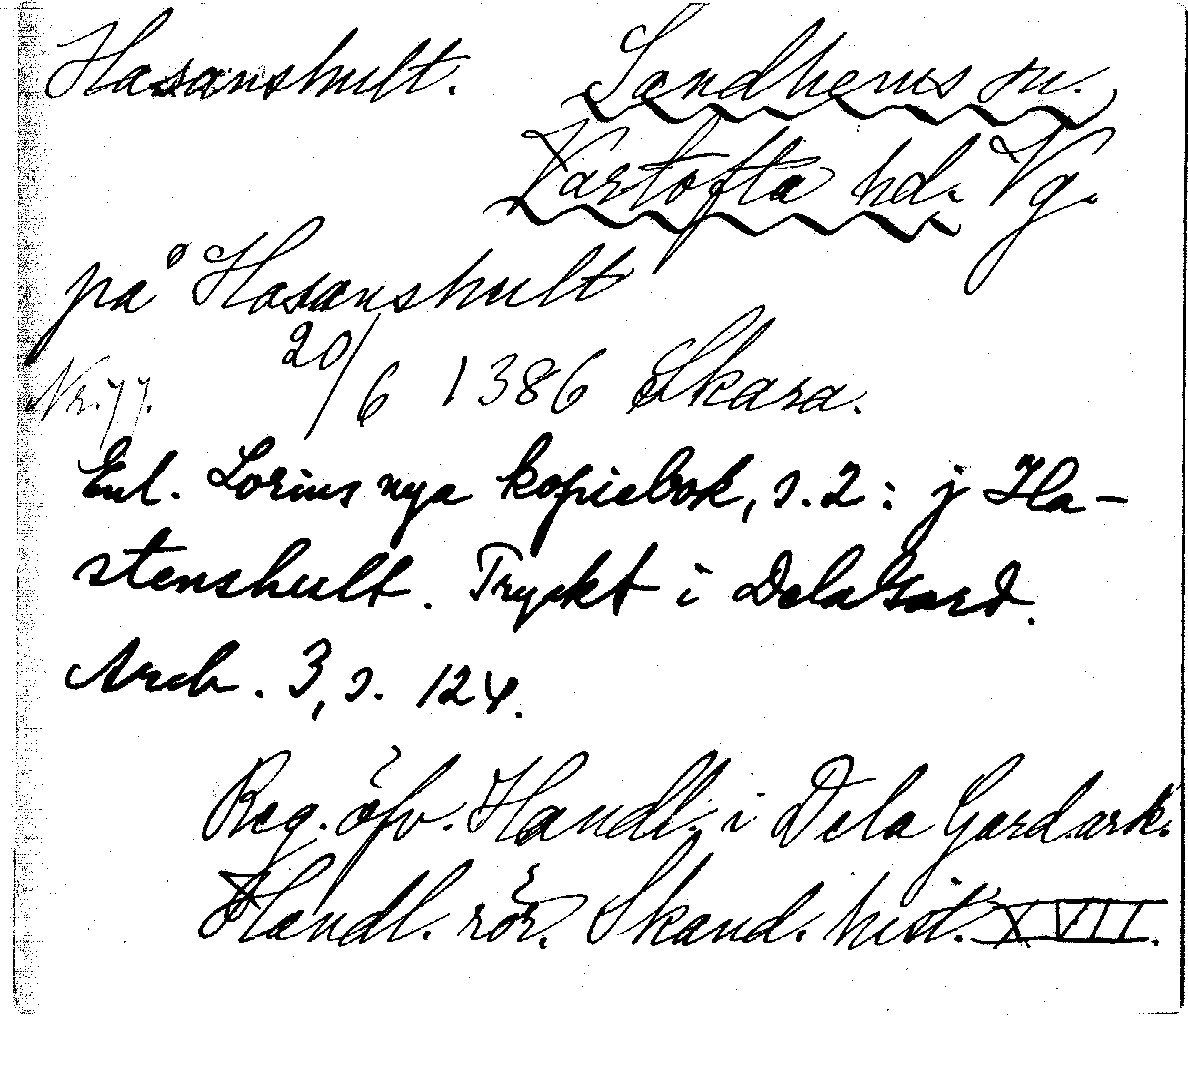 Hasanshult. Sandhems sn.
Vartofta hd. Vg.
på Hasanshult
Nr. 77. 20/6 1386 Skara.
Enl. Lorins nya kopiebok, s. 2: j Ha-
stenshult. Tryckt i DelaGard.
Arch. 3, s. 124.
Reg. öfv. Handl. i Dela Gard.ark.
Handl. rör. Skand. hist. XVII.